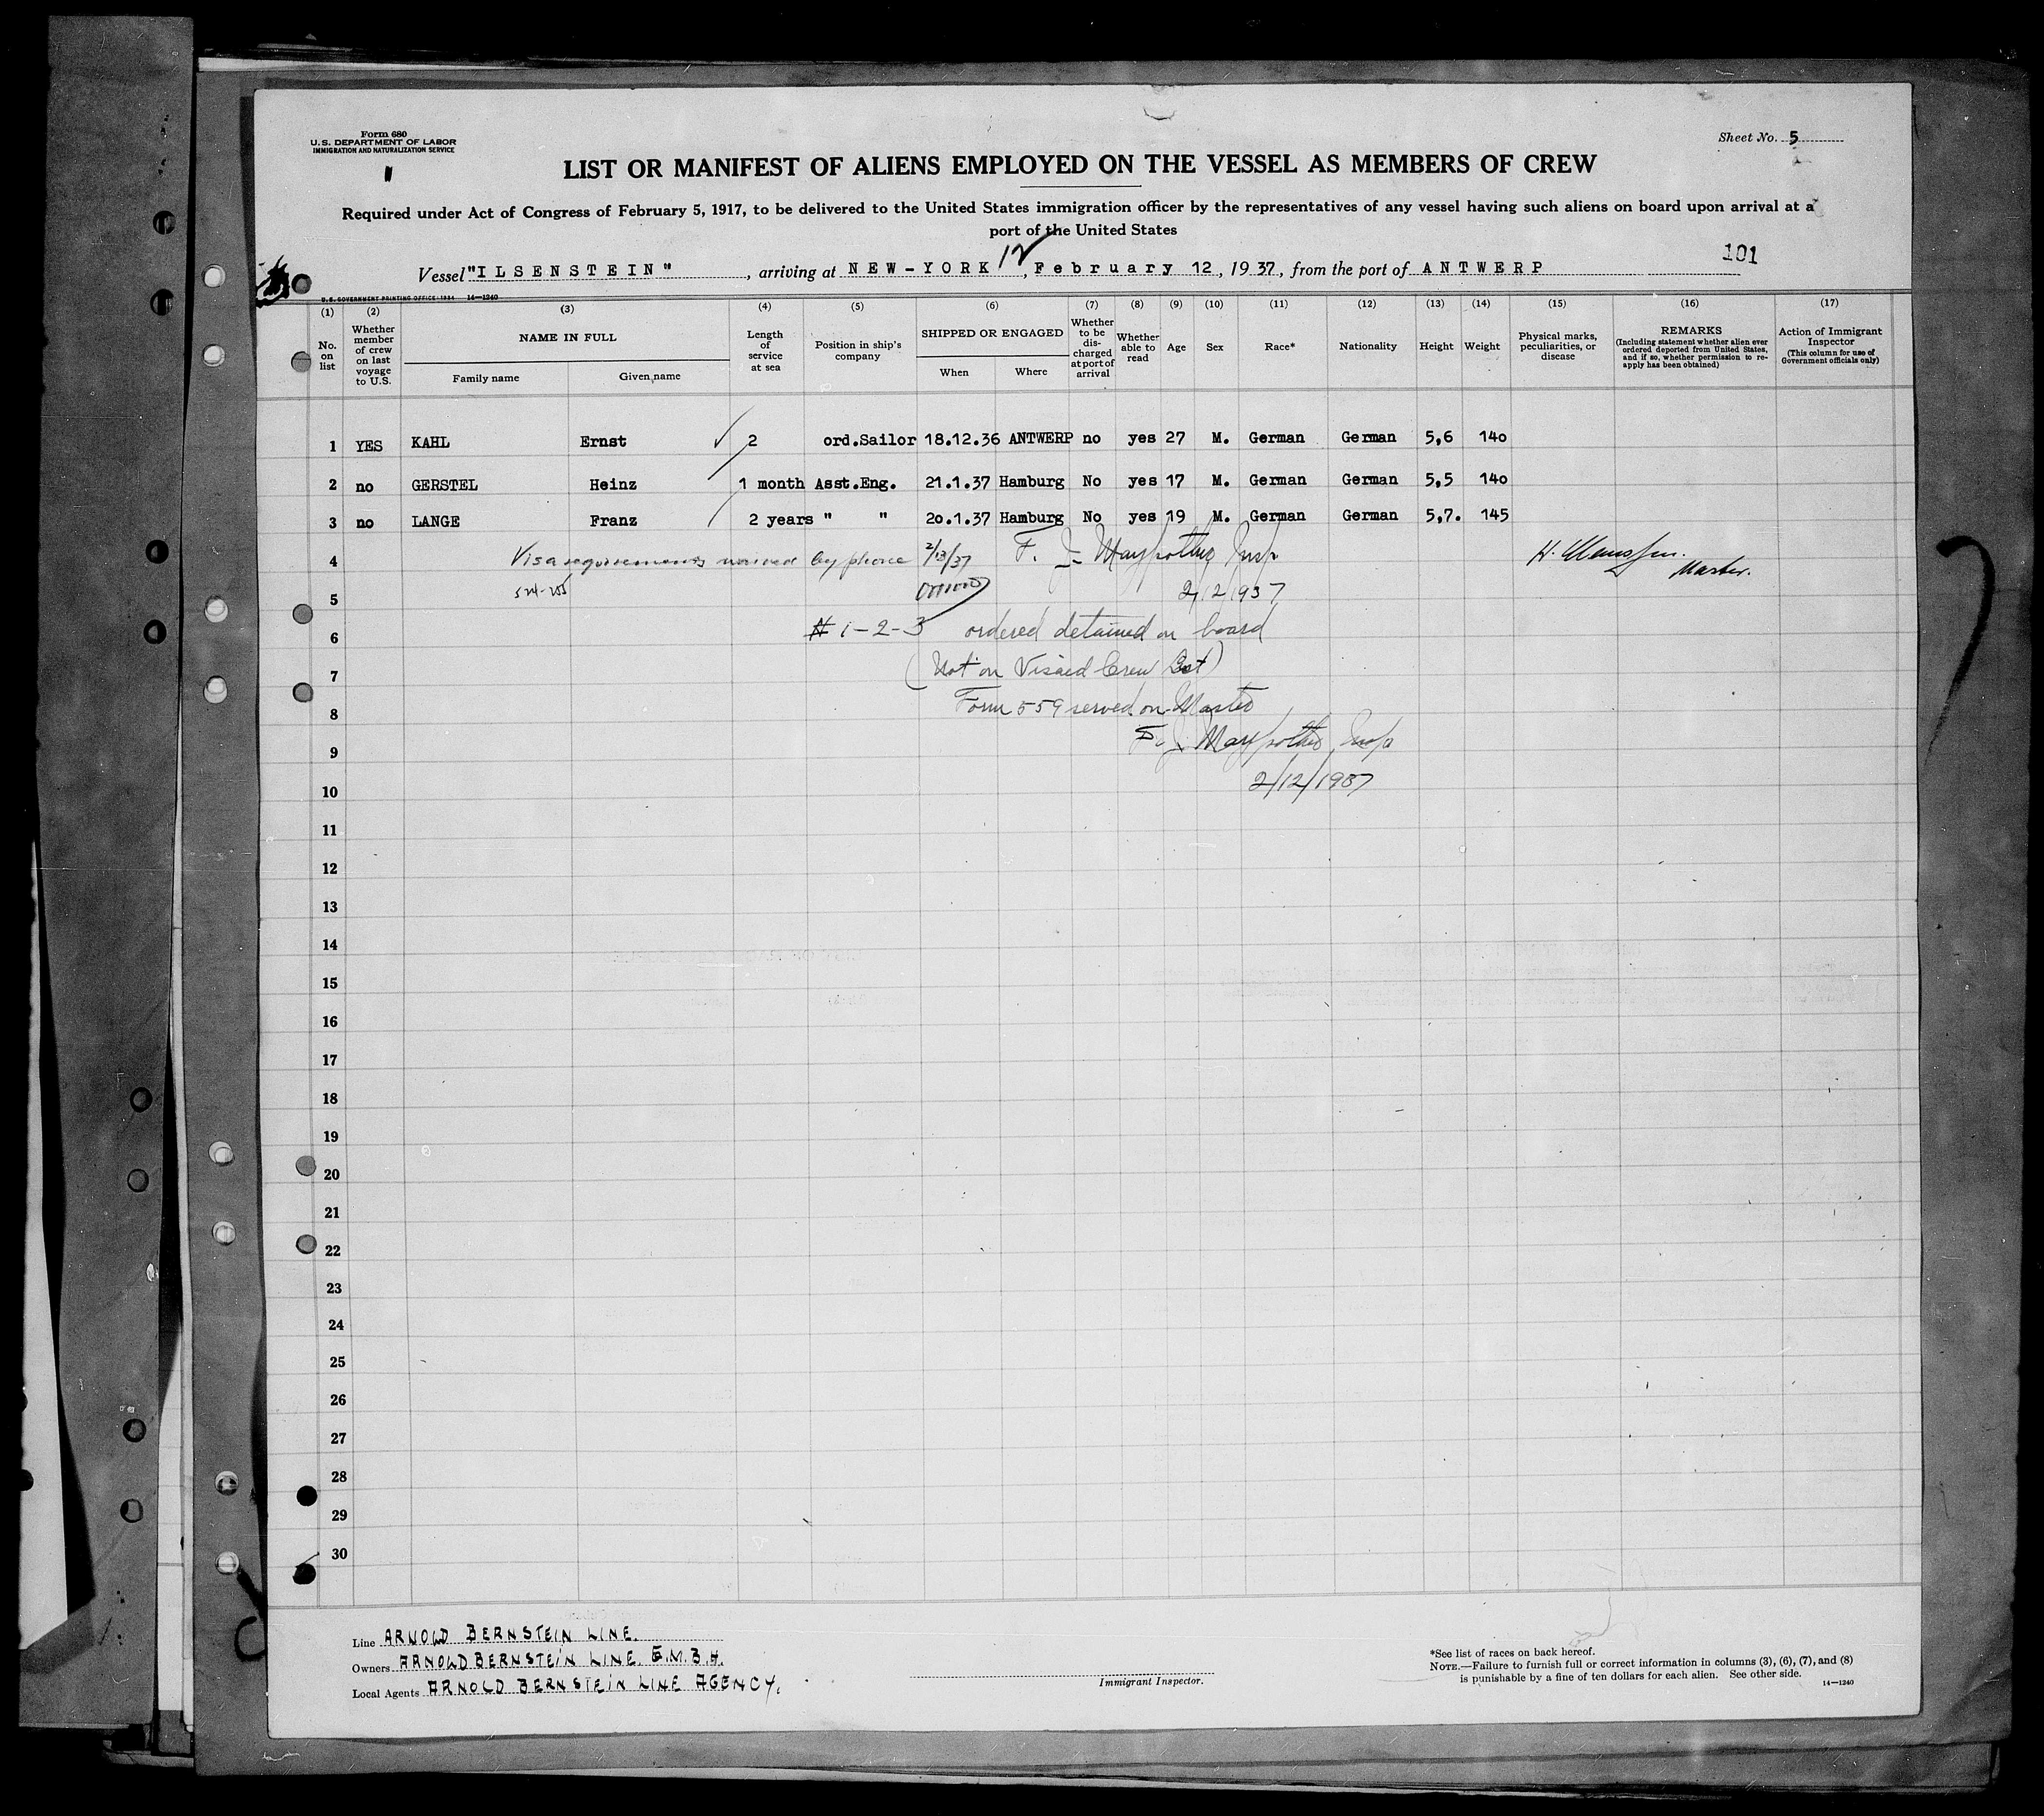 Form 680
U.S. DEPARTMENT OF LABOR
IMMIGRATION AND NATURALIZATION SERVICE
Sheet No. 5
LIST OR MANIFEST OF ALIENS EMPLOYED ON THE VESSEL AS MEMBERS OF CREW
Required under Act of Congress of February 5, 1917, to be delivered to the United States immigration officer by the representatives of any vessel having such aliens on board upon arrival at a
port of the United States
12
101
Vessel "ILSENSTEIN", arriving at NEW-YORK, February 12, 1937, from the port of ANTWERP
U.S. GOVERNMENT PRINTING OFFICE: 1934 14—1240
(1) No. on list
(2) Whether member of crew on last voyage to U.S.
(3) NAME IN FULL
Family name Given name
(4) Length of service at sea
(5) Position in ship's company
(6) SHIPPED OR ENGAGED
When Where
(7) Whether to be discharged at port of arrival
(8) Whether able to read
(9) Age
(10) Sex
(11) Race*
(12) Nationality
(13) Height
(14) Weight
(15) Physical marks, peculiarities, or disease
(16) REMARKS (Including statement whether alien ever ordered deported from United States, and if so, whether permission to re-apply has been obtained)
(17) Action of Immigrant Inspector (This column for use of Government officials only)
1 YES KAHL Ernst 2 ord.Sailor 18.12.36 ANTWERP no yes 27 M. German German 5,6 140
2 no GERSTEL Heinz 1 month Asst.Eng. 21.1.37 Hamburg No yes 17 M. German German 5,5 140
3 no LANGE Franz 2 years " " 20.1.37 Hamburg No yes 19 M. German German 5,7. 145
4 Visa requirements waived by phone 2/13/37 F. J. Insp Master.
5 2/12/1937
6 # 1-2-3 ordered detained on board
7 (Not on Visaed Crew List)
8 Form 559 served on Master
9 F. J. Insp
10 2/12/1937
11
12
13
14
15
16
17
18
19
20
21
22
23
24
25
26
27
28
29
30
Line ARNOLD BERNSTEIN LINE.
Owners ARNOLD BERNSTEIN LINE. G.M.B.H.
Local Agents ARNOLD BERNSTEIN LINE AGENCY.
Immigrant Inspector.
*See list of races on back hereof.
NOTE.—Failure to furnish full or correct information in columns (3), (6), (7), and (8)
is punishable by a fine of ten dollars for each alien. See other side.
14—1240